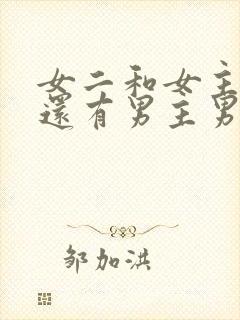 女二和女主
還有男主男
邹加洪